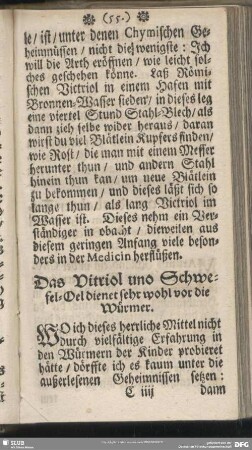 (55.)
le/ ist/ unter denen Chymischen Ge-
heimnüssen/ nicht die wenigste: Ich
will die Arth eröffnen/ wie leicht sol-
ches geschehen könne. Laß Römi-
schen Victriol in einem Hafen mit
Bronnen-Wasser sieden/ in dieses leg
eine viertel Stund Stahl-Blech/ als
dann zieh selbe wider heraus/ daran
wirst du viel Blätlein Kupfers finden/
wie Rost/ die man mit einem Messer
herunter thun/ und andern Stahl
hinein thun kan/ um neue Blätlein
zu bekommen/ und dieses läßt sich so
lange thun/ als lang Victriol im
Wasser ist. Dieses nehm ein Ver-
ständiger in obacht/ dieweilen aus
diesem geringen Anfang viele beson-
ders in der Medicin herflüßen.
Das Vitriol und Schwe-
fel-Oel dienet sehr wohl vor die
Würmer.
WO ich dieses herrliche Mittel nicht
durch vielfältige Erfahrung in
den Würmern der Kinder probieret
hätte/ dörffte ich es kaum unter die
außerlesenen Geheimnissen setzen:
C iiij dann
SLUB
DFG